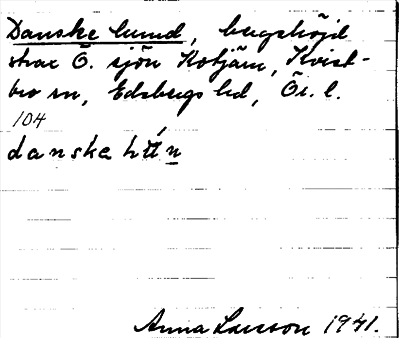 Danske lund, bergshöjd
strax Ö. sjön Kotjärn, Kvist-
bro sn, Edsbergs hd, Ör. l.
104
danske
Anna Larsson 1941.